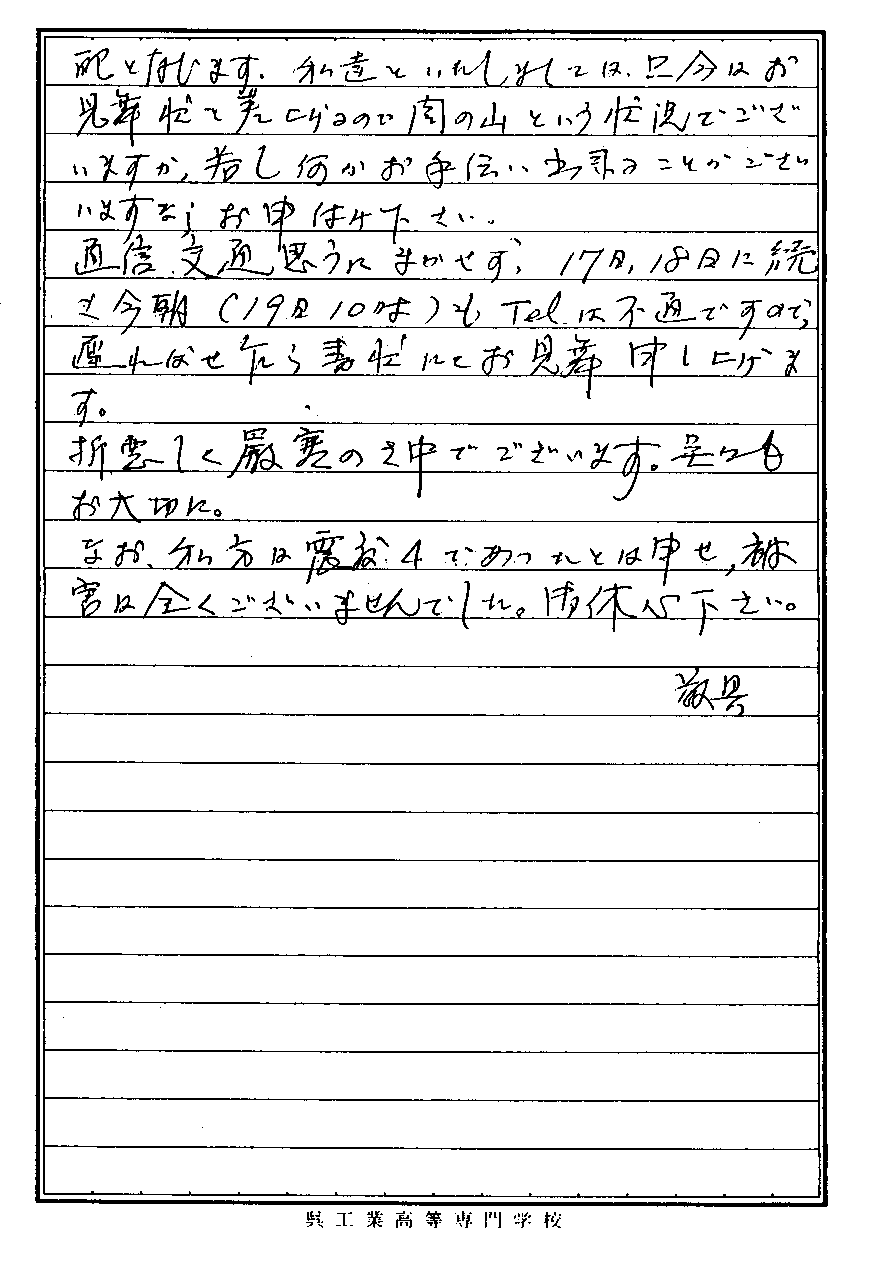 配と存じます。私達といたしましては、只今はお
見舞状を差し上げるので関の山という状況でござ
いますが、若し何かお手伝い出来ることがござい
いますならお申付け下さい。
通信、交通思うにまかせず、17日、18日に続
き今朝(19日10時)も Tel は不通ですので、
遅ればせ乍ら書状にてお見舞申し上げま
す。
折悪しく厳寒の之中でございます。呉々も
お大切に。
なお、私方は震度4であったとは申せ、被
害は全くございませんでした。御休心下さい。
敬具
呉工業高等専門学校